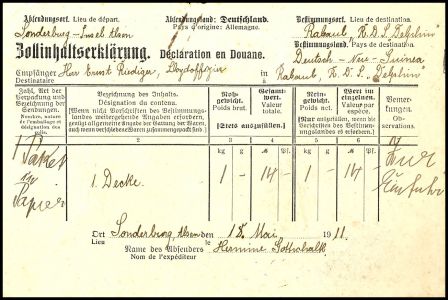 Absendungsort. Lieu de départ. Absendungsland: Deutschland. Bestimmungsort. Lieu de destination.
Sonderburg-Insel Alsen Pays d'origine: Allemagne. Rabaul, R.D.S. „Delphin"
Zollinhaltserklärung. Déclaration en Douane. Bestimmungsland. Pays de destination.
Deutsch-Neu-Guinea
Empfänger Herr Ernst Rüdiger, Lloydoffizier in Rabaul, R.D.S. Delphin
Destinataire à
Zahl, Art der Verpackung und Bezeichnung der Sendungen.
Nombre, nature de l'emballage et désignation des colis.
Bezeichnung des Inhalts.
Désignation du contenu.
[Wenn nicht Vorschriften des Bestimmungslandes weitergehende Angaben erfordern, genügt allgemeine Angabe der Gattung der Waren, auch wenn verschiedene Waren zusammengepackt sind.]
Rohgewicht.
Poids brut.
Gesamtwert.
Valeur totale.
[Stets auszufüllen.]
Reingewicht.
Poids net.
Wert im einzelnen.
Valeur par espèce.
[Nur auszufüllen, wenn die Vorschriften des Bestimmungslandes es erfordern.]
Bemerkungen.
Observations.
1 2 3 4 5 6 7
kg g M Pf. kg g M Pf.
1 Paket in Papier
1 Decke.
1 — 14 — 1 — 14 —
Zur Einfuhr
Ort Sonderburg Alsen den 18. Mai 1911.
Lieu le
Name des Absenders Hermine Gottschalk
Nom de l'expéditeur